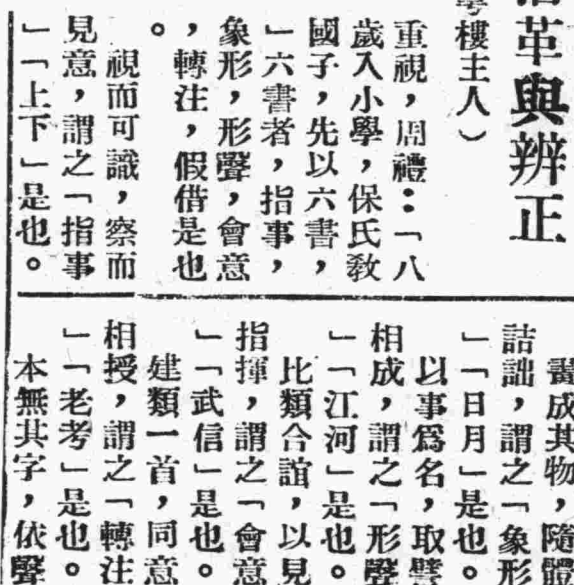 革與辨正
樓主人）
重視，周禮：「八
歲入小學，保氏教
國子，先以六書，
」六書者，指事，
象形，形聲，會意
，轉注，假借是也
。
視而可識，察而
見意，謂之「指事
」「上下」是也。
畫成其物，隨體
詰詘，謂之「象形
」「日月」是也。
以事爲名，取譬
相成，謂之「形聲
」「江河」是也。
比類合誼，以見
指揮，謂之「會意
」「武信」是也。
建類一首，同意
相授，謂之「轉注
」「老考」是也。
本無其字，依聲